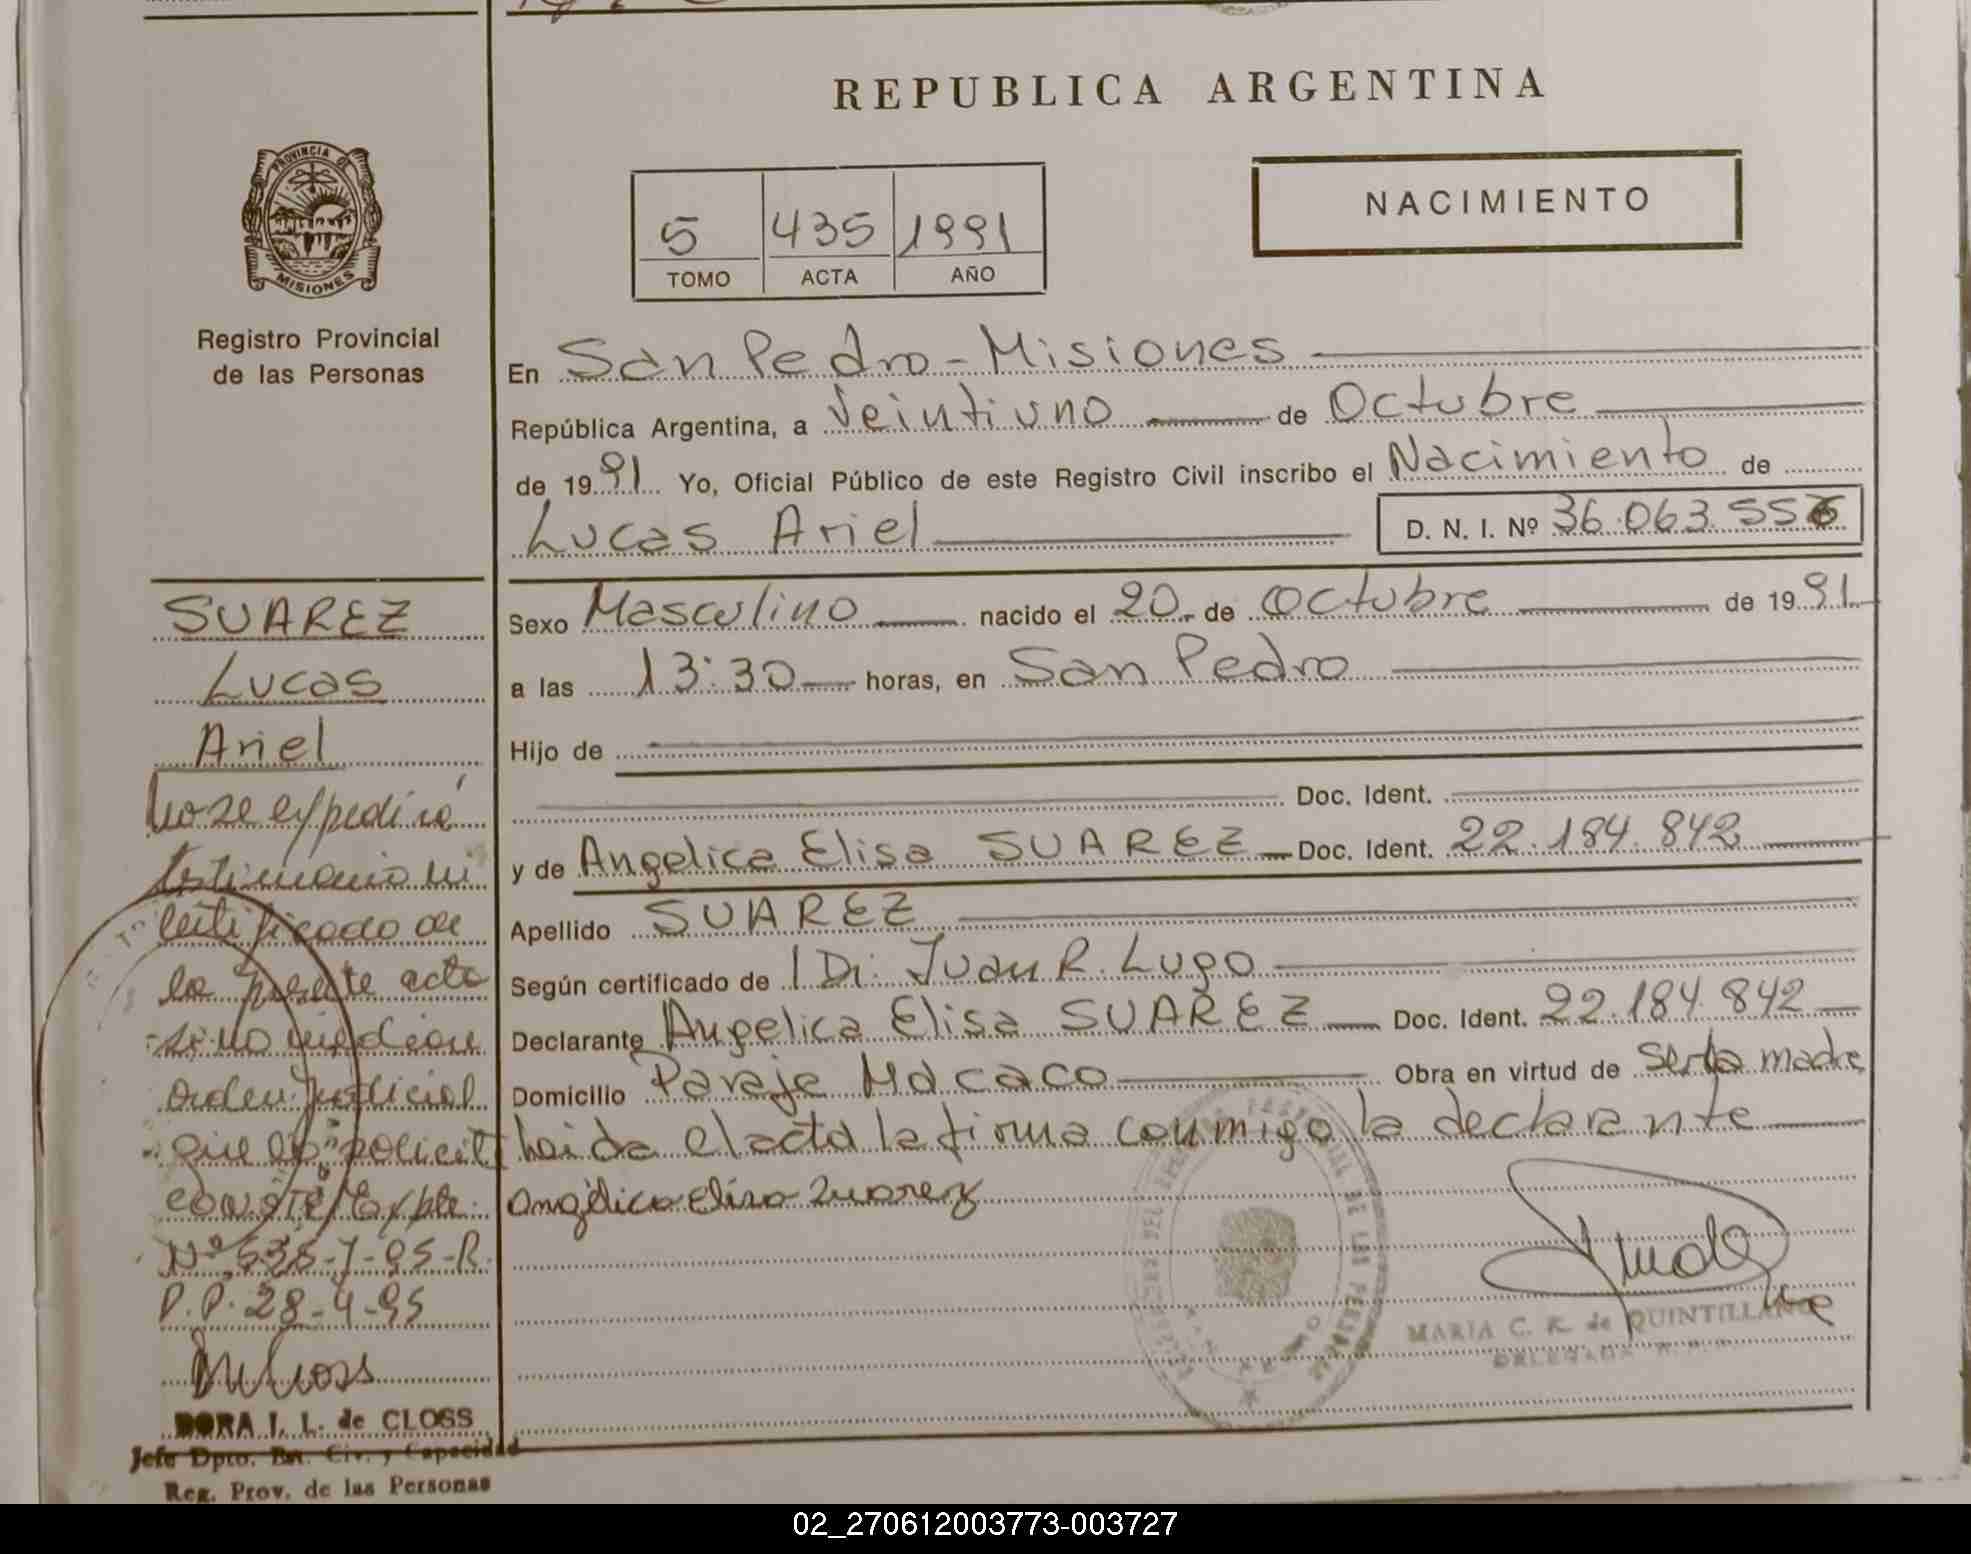 REPUBLICA ARGENTINA
NACIMIENTO
5 435 1991
TOMO ACTA AÑO
PROVINCIA DE
MISIONES
Registro Provincial
de las Personas
En San Pedro - Misiones
República Argentina, a Veintiuno de Octubre
de 1991 Yo, Oficial Público de este Registro Civil inscribo el Nacimiento de
Lucas Ariel D. N. I. Nº 36.063.556
Sexo Masculino nacido el 20 de Octubre de 1991
a las 13:30 horas, en San Pedro
Hijo de
Doc. Ident.
y de Angelica Elisa SUAREZ Doc. Ident. 22.184.842
Apellido SUAREZ
Según certificado de Dr. Juan R. Lugo
Declarante Angelica Elisa SUAREZ Doc. Ident. 22.184.842
Domicilio Paraje Macaco Obra en virtud de ser la madre
Leida el acta la firma conmigo la declarante
Angélica Elisa Suarez
MARIA C. K. de QUINTILLANO
DELEGADA
SUAREZ
Lucas
Ariel
No se expedirá
testimonio ni
certificado de
la presente acta
si no median
orden judicial
que lo solicit
conste Expte.
Nº 536-7-95-R.
P.P. 28-4-95
DORA I. L. de CLOSS
Jefe Dpto. Est. Civ. y Capacidad
Reg. Prov. de las Personas
02_270612003773-003727